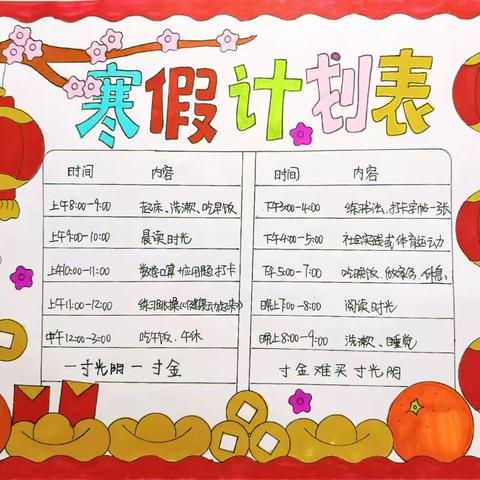 寒假计划表
时间 内容
上午8:00-9:00 起床、洗漱、吃早饭
上午9:00-10:00 晨读时光
上午10:00-11:00 数学口算、应用题打卡
上午11:00-12:00 练习跳操《健康动起来》
中午12:00-3:00 吃午饭、午休
一寸光阴一寸金
时间 内容
下午3:00-4:00 练书法,打卡字帖一张
下午4:00-5:00 社会实践或体育运动
下午5:00-7:00 吃晚饭、做家务、休息
晚上7:00-8:00 阅读时光
晚上8:00-9:00 洗漱、睡觉
寸金难买寸光阴